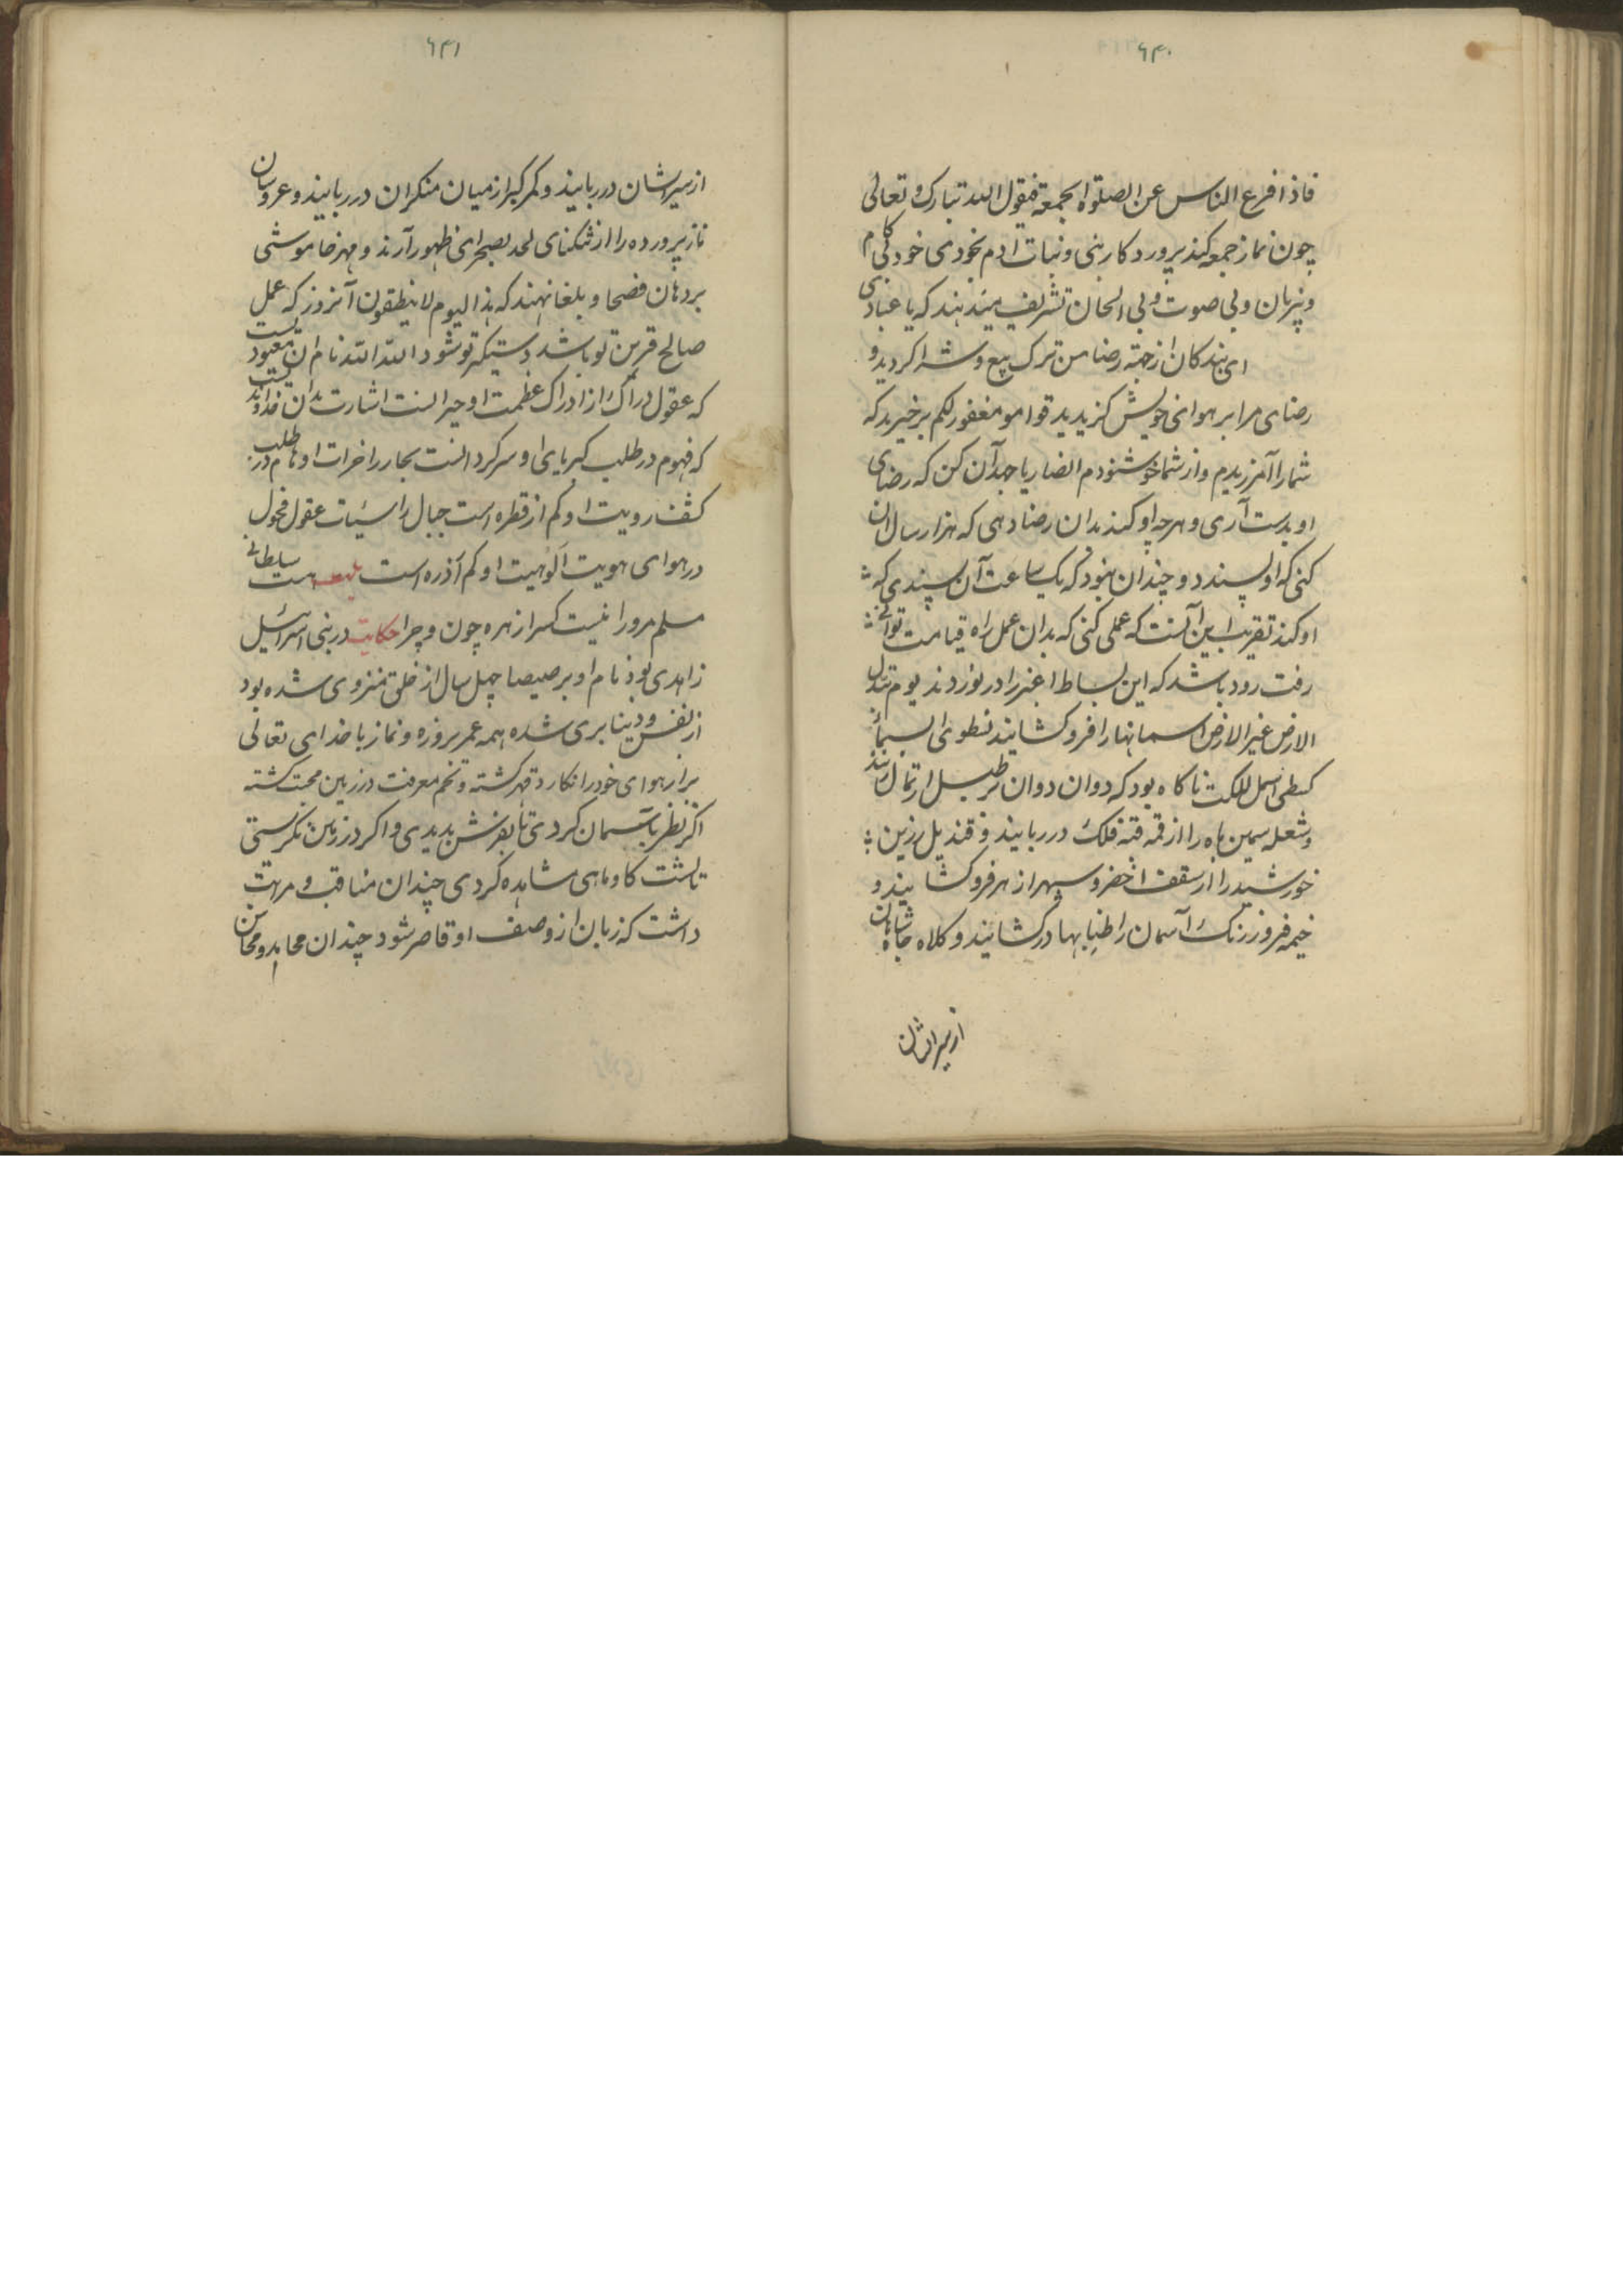 ۶۴۰
فاذا فرع الناس عن الصلوة الجمعة فیقول الله تبارک و تعالی
چون نماز جمعه کنند پروردکار بنی و نبات ادم بخودی خود بی کام
و بیزبان و بی صوت و بی الحان تشریف میدهند که یا عبادی
ای بندکان از جهته رضا من ترک بیع و شرا کردید و
رضای مرا بر هوای خویش کزیدید قوامو مغفور لکم برخیزید که
شما را آمرزیدم و از شما خوشنودم انصاریا جهد آن کن که رضای
او بدست آری و هرچه او کند بدان رضا دهی که هزار سال ان
کنی که او پسندد و چندان نبود که یک ساعت آن پسندی که
او کند تقریب این آنست که عملی کنی که بدان عمل راه قیامت توانی
رفت رود باشد که این بساط اغبر را در نوردند یوم تبدل
الارض غیر الارض اسمانها را فرو کشایند نطوی السماء
کطی السجل للکتب ناکاه بود که دوان دوان طبل ارتحال زنند
و شعله سیمین ماه را از قمه قبه فلک در ربایند و قندیل زرین
خورشید را از سقف اخضر و سپهر از هر فرو کشایند و
خیمه فروز رنک آسمان را طنابها در کشایند و کلاه جاه شاهان
از سر ایشان
۶۴۱
از سر ایشان در ربایند و کمر کبر از میان منکران در ربایند و عروسان
ناز پرورده را از تنکنای لحد بصحرای ظهور آرند و مهر خاموشی
بر دهان فصحا و بلغا نهند که هذا الیوم لا ینطقون آنروز که عمل
صالح قرین تو باشد دستیکر تو شود الله الله نام ان معبود یست
که عقول دراک از ادراک عظمت او حیرانست اشارت بدان خداوند یست
که فهوم در طلب کبریای او سرکردانست بحار زاخرات اوهام در طلب
کشف رویت او کم از قطره است جبال راسیات عقول فحول
در هوای هویت الوهیت او کم آذره است بیت هست سلطانی
مسلم مرورا نیست کس را زهره چون و چرا حکایت در بنی اسرائیل
زاهدی بود نام او برصیصا چهل سال از خلق منزوی شده بود
از نفس و دنیا بری شده همه عمر بروزه و نماز با خدای تعالی
براز هوای خود را نکارد قهر کشته و تخم معرفت در زمین محبت کشته
اکر نظر بآسمان کردی تا بعرش بدیدی و اکر در زمین نکرستی
تا پشت کاو ماهی مشاهده کردی چندان مناقب و مرتبت
داشت که زبان از وصف او قاصر شود چندان محامد و محاسن